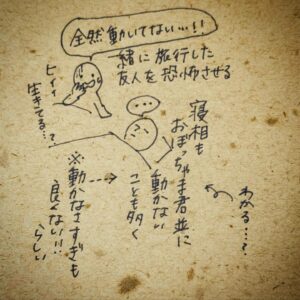 全然動いてない…!!
一緒に旅行した
友人を恐怖させる
ヒィィ
生きてる…?
…
寝相も
おぼっちゃま君並に
動かない
ことも多く
わかる…?
※動かなさすぎも
良くない!!
らしい